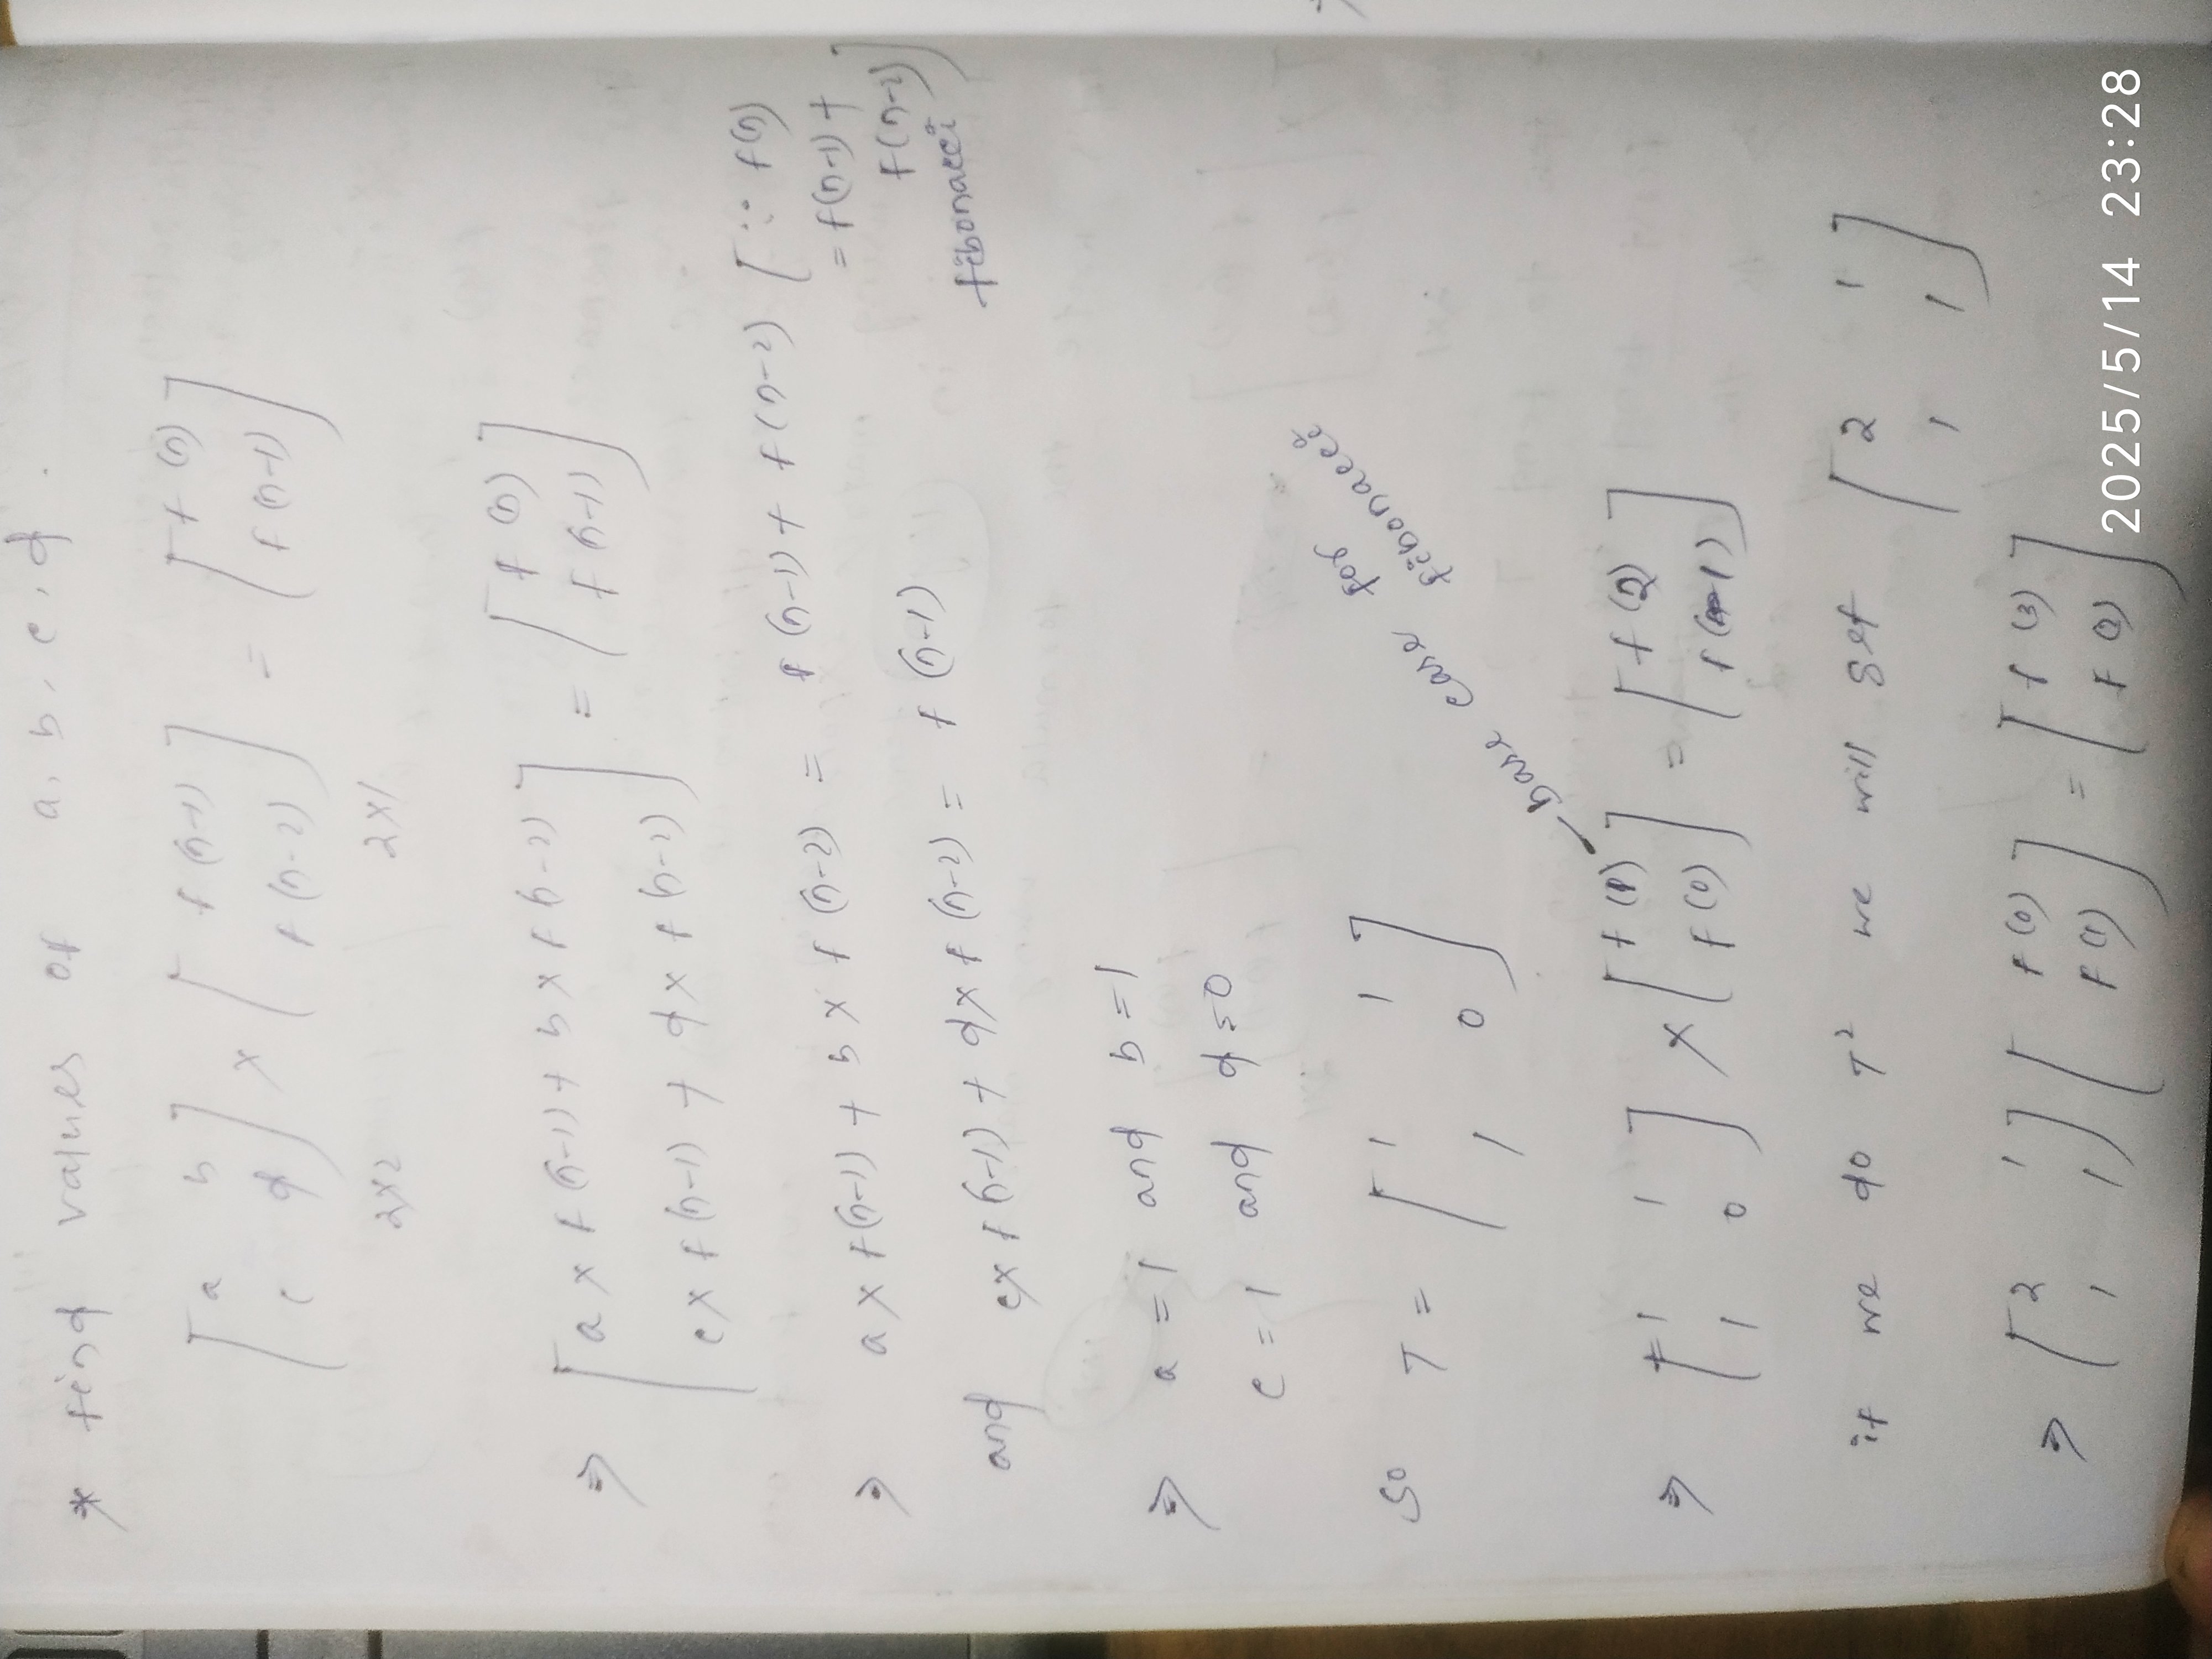 * find values of a, b, c, d.
[ a b ] × [ f(n-1) ] = [ f(n) ]
[ c d ] [ f(n-2) ] [ f(n-1) ]
2×2 2×1
⇒ [ a × f(n-1) + b × f(n-2) ] = [ f(n) ]
[ c × f(n-1) + d × f(n-2) ] [ f(n-1) ]
⇒ a × f(n-1) + b × f(n-2) = f(n-1) + f(n-2) [ ∵ f(n)
= f(n-1) +
f(n-2) ]
fibonacci
and c × f(n-1) + d × f(n-2) = f(n-1)
⇒ a = 1 and b = 1
c = 1 and d = 0
so T = [ 1 1 ]
[ 1 0 ]
base case for
fibonacci
⇒ [ 1 1 ] × [ f(1) ] = [ f(2) ]
[ 1 0 ] [ f(0) ] [ f(1) ]
if we do T² we will get [ 2 1 ]
[ 1 1 ]
⇒ [ 2 1 ] [ f(0) ] = [ f(3) ]
[ 1 1 ] [ f(1) ] [ f(2) ]
2025/5/14 23:28